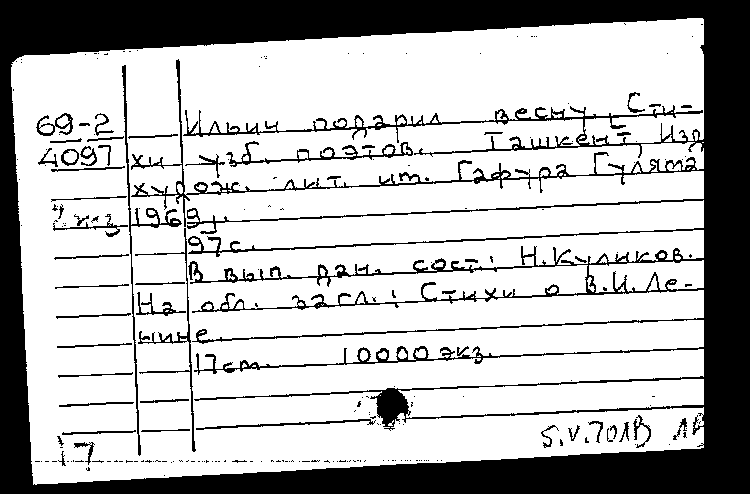 69-2 Ильич подарил весну. Сти-
4097 хи узб. поэтов. Ташкент, Изд
худож. лит. им. Гафура Гуляма
2 экз 1969г.
97с.
В вып. дан. сост.: Н. Куликов.
На обл. загл.: Стихи о В.И. Ле-
нине.
17см. 10000 экз.
17 5.V.70